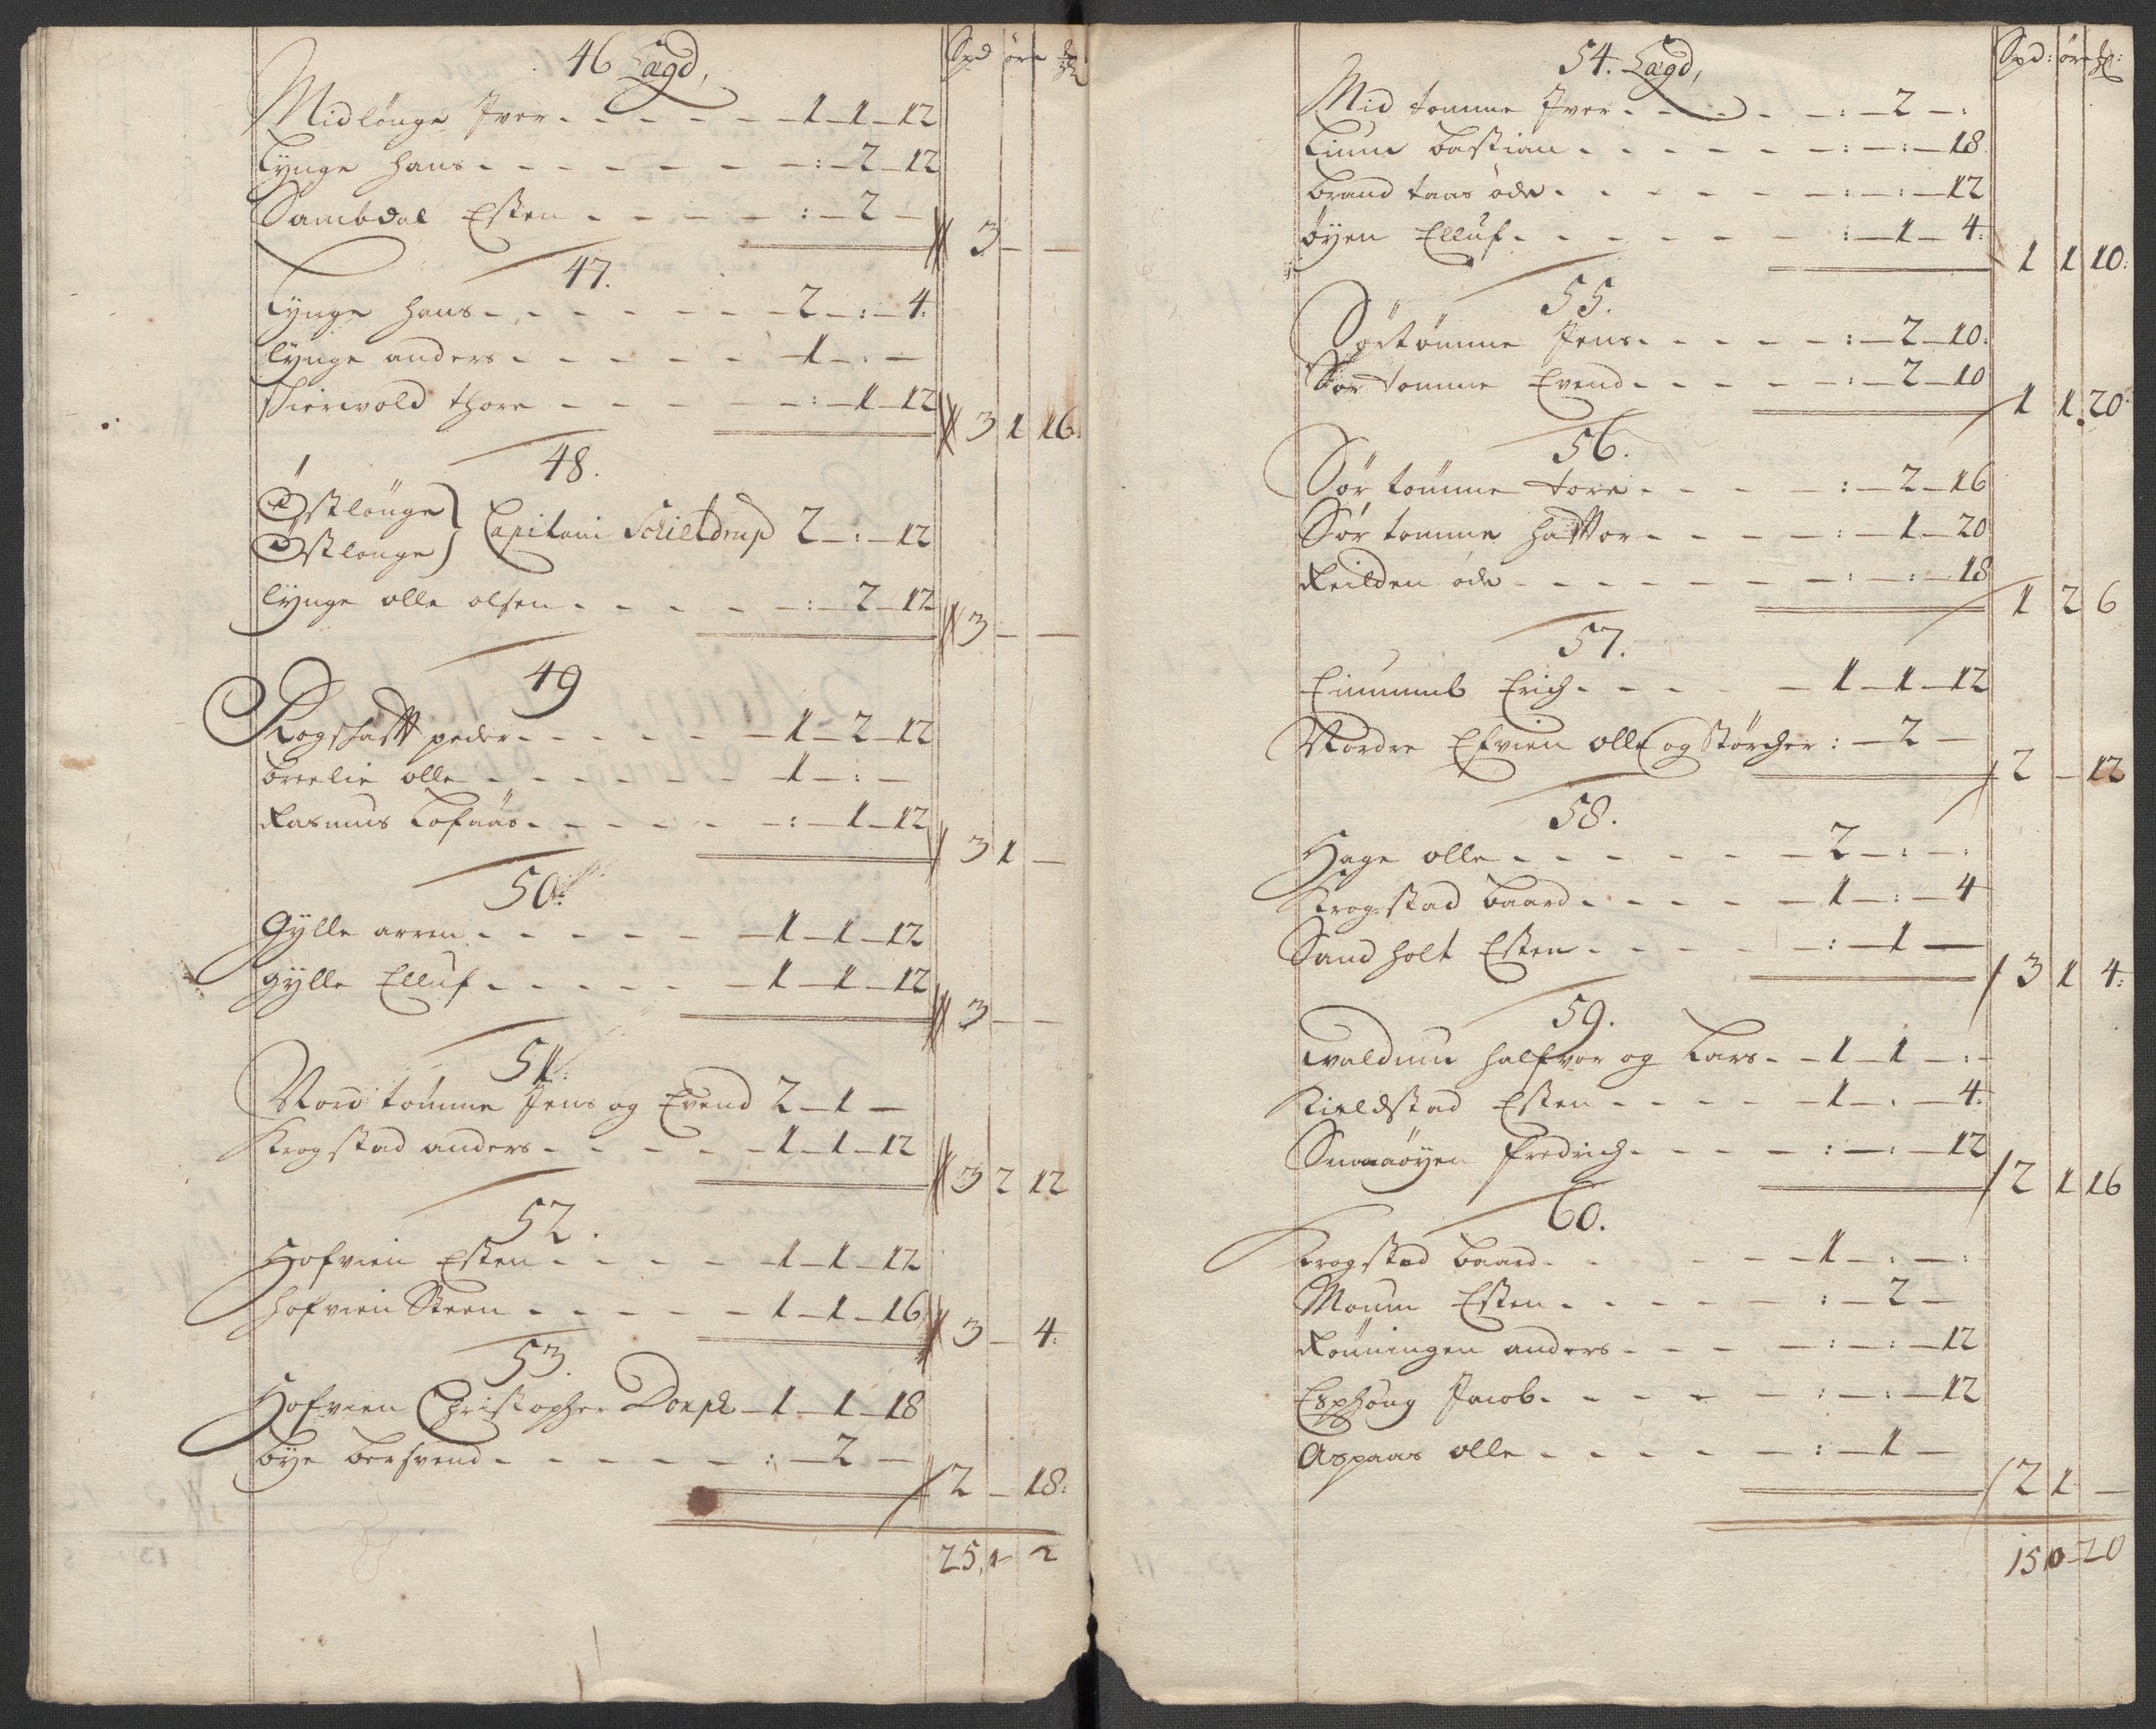 46 Lægd,
Spd øre
Midlønge Iver - - - - - 1 - 1 - 12
Lynge hans - - - - - - : - 2 - 12
Sambdal Esten - - - - : - 2 -
3 - -
47.
Lynge hans - - - - - - 2 - : - 4:
lynge anders - - - - - 1 - : -
skiervold thore - - - - : - 1 - 12
3 1 16:
48.
Østlønge
Østlønge } Capitani Schieldrup 2 - : - 12
lynge olle olsen - - - - : - 2 - 12
3 - -
49
Kogshatt peder - - - - - 1 - 2 - 12
breelie olle - - - - - - 1 - : -
Rasmus Lofaas - - - - - : - 1 - 12
3 1 -
50:
Gylle arren - - - - - 1 - 1 - 12
gylle Elluf - - - - - 1 - 1 - 12
3 - -
51:
Nord tømme Jens og Evend 2 - 1 -
Krogstad anders - - - - 1 - 1 - 12
3 2 12
52.
Hofvien Esten - - - - 1 - 1 - 12
hofvien Steen - - - - - 1 - 1 - 16
3 - 4:
53.
Hofvien Christopher Dorph - 1 - 1 - 18
bye bersvend - - - - - : - 2 -
2 - 18:
25, 1 2
54. Lægd,
Spd: øre
Mid tomme Iver - - - - - : - 2 - :
Lium bastian - - - - - : - : - 18
brand taas øde - - - - - : - : - 12
øyen Elluf - - - - - : - 1 - 4:
1 1 10:
55.
Sørtømme Jens - - - - - : - 2 - 10:
Sør tomme Evend - - - - : - 2 - 10
1 1 20
56.
Sør tømme tore - - - - : - 2 - 16
Sør tomme hattvor - - - - : - 1 - 20
Reilden øde - - - - - : - : - 18
1 2 6
57.
Eimumb Erich - - - - 1 - 1 - 12
Nordre Efvien olle og Størcher : - 2 -
2 - 12
58.
Hage olle - - - - - - 2 - : - :
Krogstad baard - - - - - 1 - : - 4
Sandholt Esten - - - - : - 1 -
3 1 4:
59.
Evaldum halfvor og Lars - - 1 - 1 - : -
Kieldstad Esten - - - - 1 - : - 4:
Smaaøyen fredrich - - - - : - : - 12
2 1 16
60.
Krogstad baard - - - - - 1 - : - :
Moum Esten - - - - - : - 2 -
Rønningen anders - - - - : - : - 12
Esphøug Jacob - - - - - : - : - 12
Aspaas olle - - - - - : - 1 -
2 1 -
15 0 20